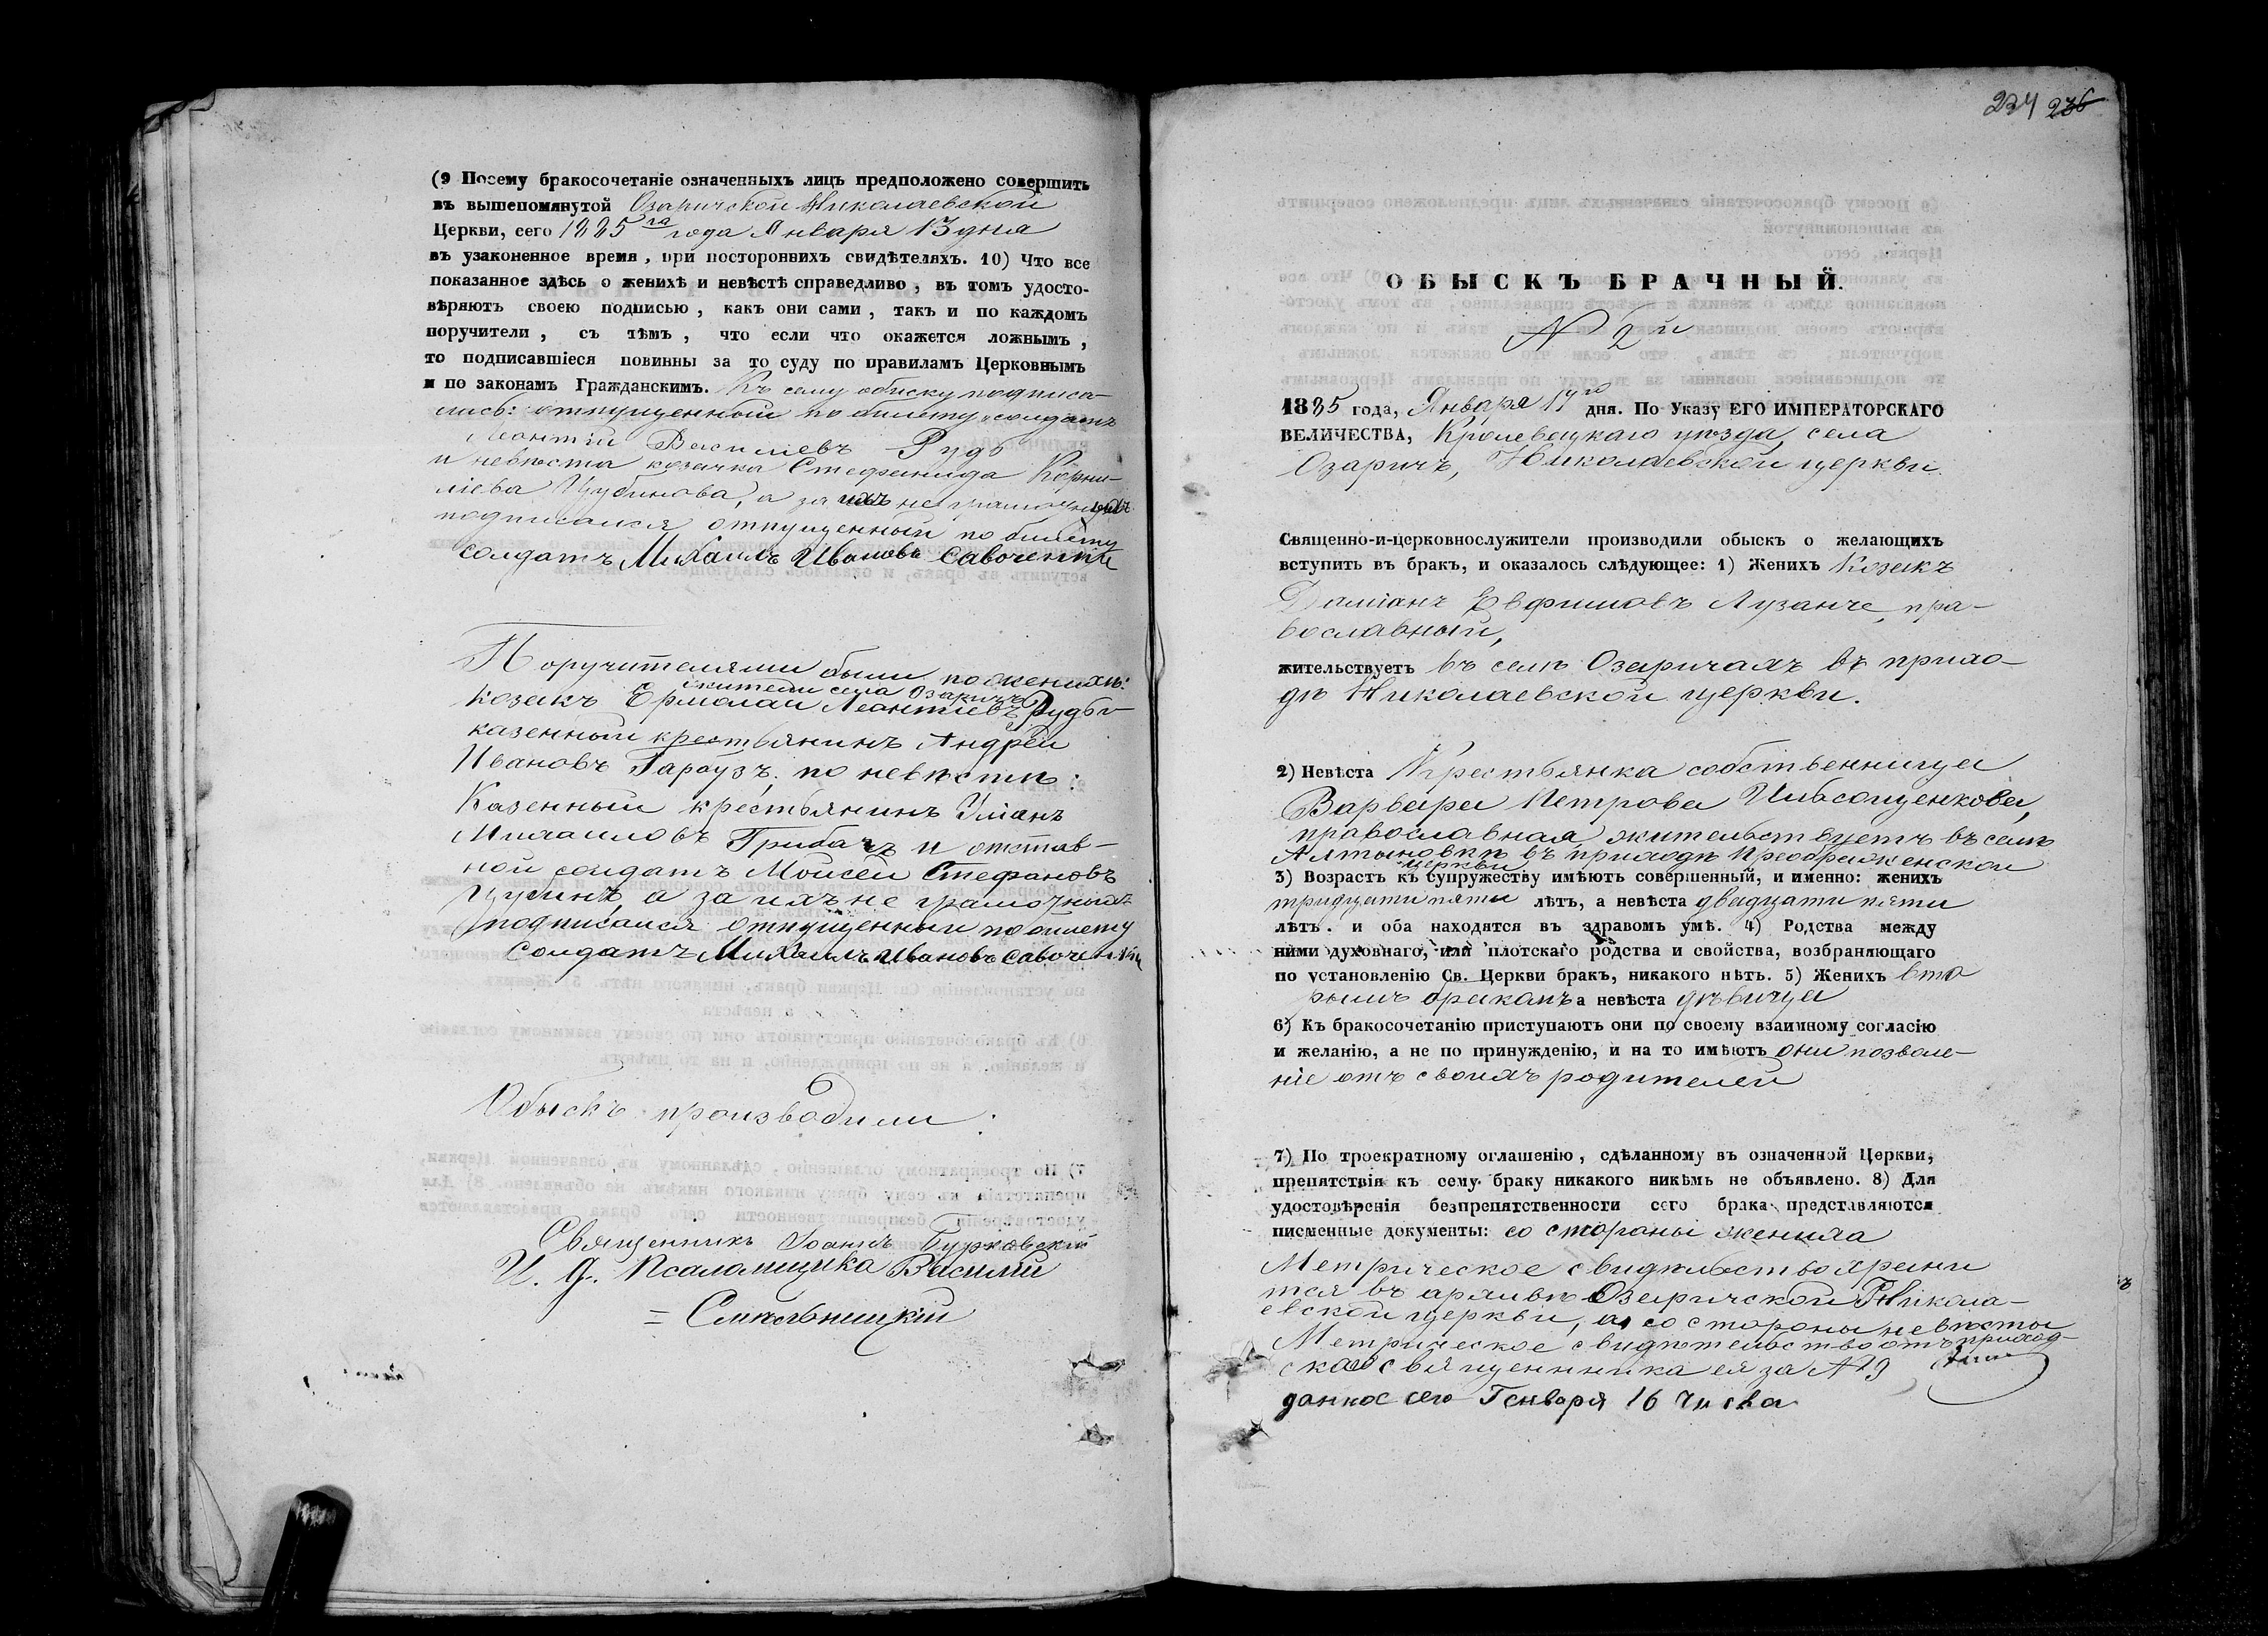 (9 Посему бракосочетаніе означенныхъ лицъ предположено совершить
въ вышепомянутой Озаричской Николаевской
Церкви, сего 1885го года Января 13 дня
въ узаконенное время, при постороннихъ свидѣтеляхъ. 10) Что все
показанное здѣсь о женихѣ и невѣстѣ справедливо, въ томъ удосто-
вѣряютъ своею подписью, какъ они сами, такъ и по каждомъ
поручители, съ тѣмъ, что если что окажется ложнымъ,
то подписавшіеся повинны за то суду по правиламъ Церковнымъ
и по законамъ Гражданскимъ. Къ сему обыску подписа-
лись: отпущенный по билету солдатъ
Леонтій Васильевъ Рудь
и невѣста козачка Стефанида Корни-
ліева Цубинова, а за ихъ не грамотныхъ
подписался отпущенный по билету
солдатъ Михаилъ Ивановъ Савоченкій
Поручителями были по женихѣ:
жители села Озаричъ
козакъ Ермолай Леонтіевъ Рудь и
казенный крестьянинъ Андрей
Ивановъ Гарбузъ; по невѣстѣ:
Казенный крестьянинъ Уліанъ
Михаиловъ Грибачъ и отстав-
ной солдатъ Моисей Стефановъ
а за ихъ не грамотныхъ
подписался отпущенный по билету
солдатъ Михаилъ Ивановъ Савоченкій
Обыскъ производили:
Священникъ Іоаннъ Бурковскій
И. д. Псаломщика Василій
= Смѣльницкій
234 236
ОБЫСКЪ БРАЧНЫЙ.
№ 2й
1885 года, Января 17го дня. По Указу ЕГО ИМПЕРАТОРСКАГО
ВЕЛИЧЕСТВА, Кролевецкаго уѣзда, села
Озаричъ, Николаевской церкви.
Священно-и-церковнослужители производили обыскъ о желающихъ
вступить въ бракъ, и оказалось слѣдующее: 1) Женихъ Козакъ
Даміанъ Евфимовъ Лузанче, пра-
вославный,
жительствуетъ въ селѣ Озаричахъ въ прихо-
дѣ Николаевской церкви.
2) Невѣста Крестьянка собственница
Варвара Петрова
православная, жительствуетъ въ селѣ
Алтыновкѣ въ приходѣ Преображенской
церкви
3) Возрастъ къ супружеству имѣютъ совершенный, и именно: женихъ
тридцати пяти лѣтъ, а невѣста двадцати пяти
лѣтъ. и оба находятся въ здравомъ умѣ. 4) Родства между
ними духовнаго, или плотскаго родства и свойства, возбраняющаго
по установленію Св. Церкви бракъ, никакого нѣтъ. 5) Женихъ вто
рымъ бракомъ а невѣста дѣвица
6) Къ бракосочетанію приступаютъ они по своему взаимному согласію
и желанію, а не по принужденію, и на то имѣютъ они позволе-
ніе отъ своихъ родителей
7) По троекратному оглашенію, сдѣланному въ означенной Церкви,
препятствія къ сему браку никакого никѣмъ не объявлено. 8) Для
удостовѣренія безпрепятственности сего брака представляются
писменные документы: со стороны жениха
Метрическое свидѣтельство храни
тся въ архивѣ Озаричской Никола-
евской церкви, а со стороны невѣсты
Метрическое свидѣтельство отъ приход-
скаго священника ея за № 9
данное сего Генваря 16 числа